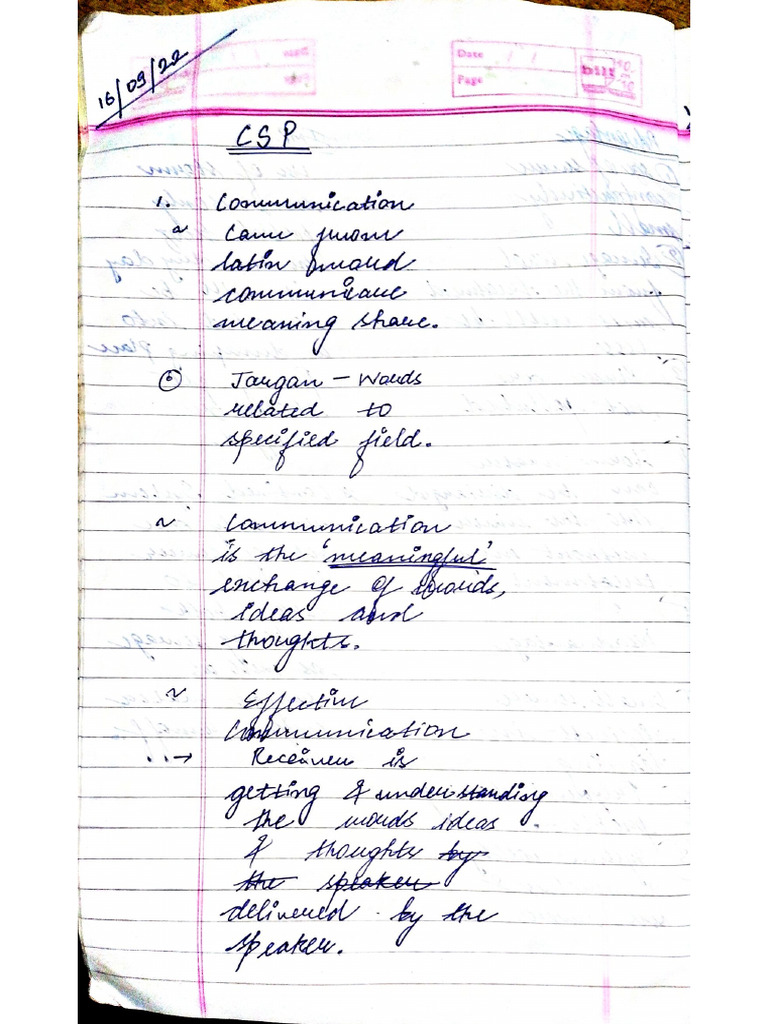 16/09/22
Date / /
Page
bilt
CSP
1. Communication
~ Came from
latin word
communicare
meaning share.
(b) Jargan - Words
related to
specified field.
~ Communication
is the 'meaningful'
exchange of words,
ideas and
thoughts.
~ Effective
Communication
..→ Receiver is
getting & understanding
the words ideas
& thoughts by
the speaker
delivered by the
speaker.